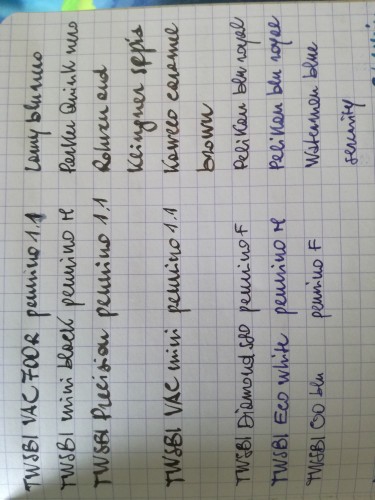 TWSBI VAC 700R pennino 1.1 Lamy blu nero
TWSBI mini black pennino M Parker Quink nero
TWSBI Precision pennino 1.1 Rohrer and
Klingner seppia
TWSBI VAC mini pennino 1.1 Kaweco caramel
brown
TWSBI Diamond 580 pennino F Pelikan blu royal
TWSBI Eco white pennino M Pelikan blu royal
TWSBI GO blu pennino F Waterman blue
serenity